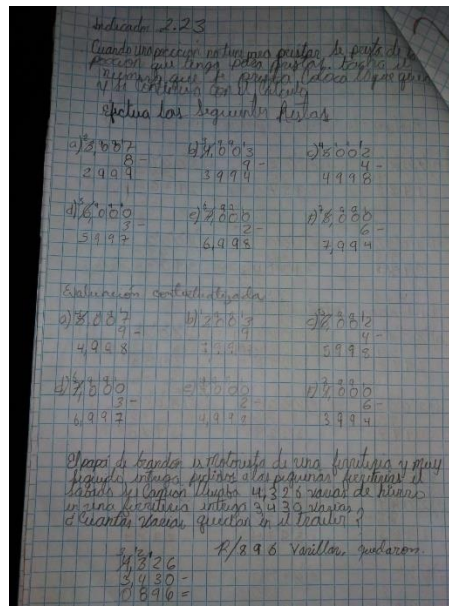 Indicador 2.23
Cuando una posicion no tiene para prestar, se presta de la
posicion que tenga para prestar.
y se continua con el calculo
Efectua las siguientes restas
a) 3,007 b) 4,003 c) 5,002
8- 4-
2999 3999 4998
d) 6,000 e) 7,000 f) 8,000
3- 2- 6-
5997 6,998 7,994
Evaluación contextualizada
a) 5,007 c) 6,002
9- 9 4-
4,998 5998
d) 7,000 f) 4,000
3- 2- 6-
6,997 3994
El papá de brandon es motorista de una ferreteria y muy
seguido entrega pedidos a las pequeñas ferreterias el
sabado su camion llevaba 4,326 varias de hierro
en una ferreteria entrego 3430 varias
¿Cuantas varias quedan en el trailer?
R/896 varillas quedaron.
4,326
3,430-
0896=